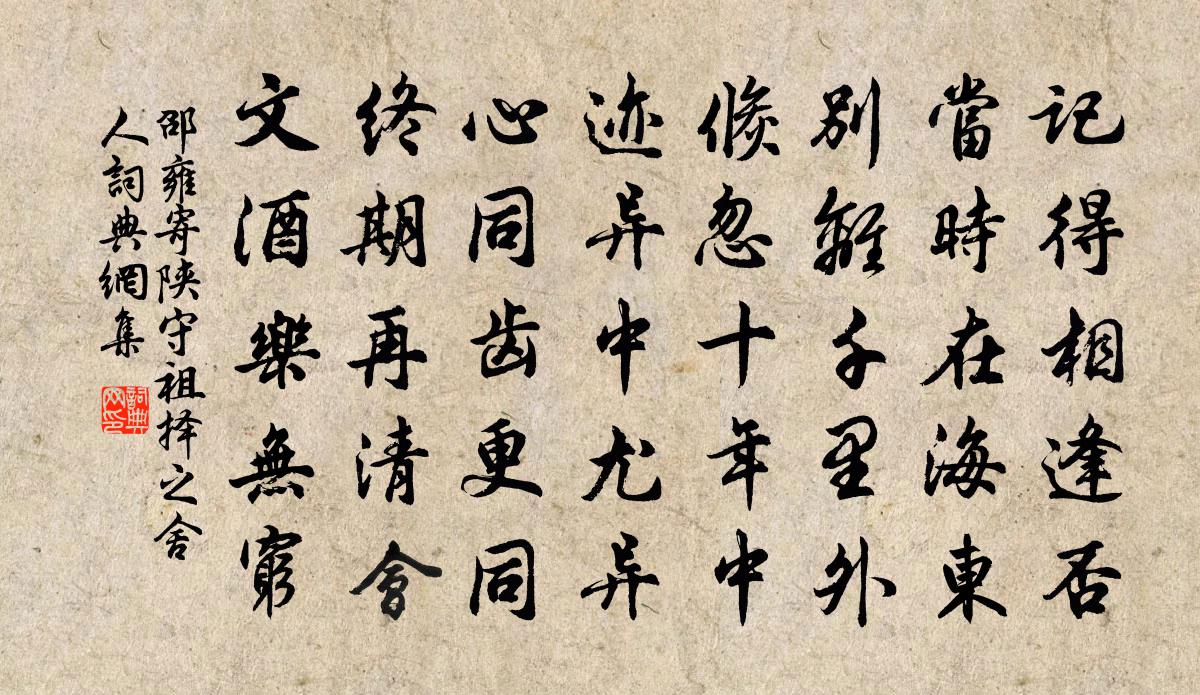 記得相逢否
當時在海東
別離千里外
倐忽十年中
迹异中尤异
心同齿更同
終期再清會
文酒樂無窮
邵雍寄陝守祖择之舍
人詞典網集
詞典网印